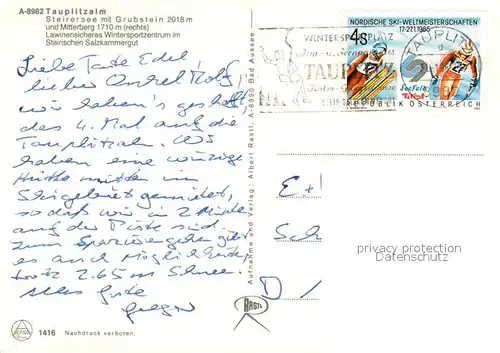 A-8982 Tauplitzalm
Steirersee mit Grubstein 2018 m
und Mitterberg 1710 m (rechts)
Lawinensicheres Wintersportzentrum im
Steirischen Salzkammergut
Liebe Tante Edel
lieber Onkel
wir haben's geschafft
das 4. Mal auf die
Tauplitzalm. Wir
haben eine winzige
Hütte mitten im
Skigebiet gemietet,
so daß wir in 2 Minuten
auf der Piste sind.
Zum Spazierengehen gibt
es auch Möglichkeiten
trotz 2.65 m Schnee.
Alles Gute
Aufnahme und Verlag: Albert Rastl, A-8990 Bad Aussee
WINTERSPORTPLATZ
TAUPLITZ
TAUPLITZ
NORDISCHE SKI-WELTMEISTERSCHAFTEN
17-27.1.1985
4s
Seefeld
Tirol
REPUBLIK ÖSTERREICH
E+!
Sch
D/
privacy protection
Datenschutz
RASTL
1416 Nachdruck verboten.